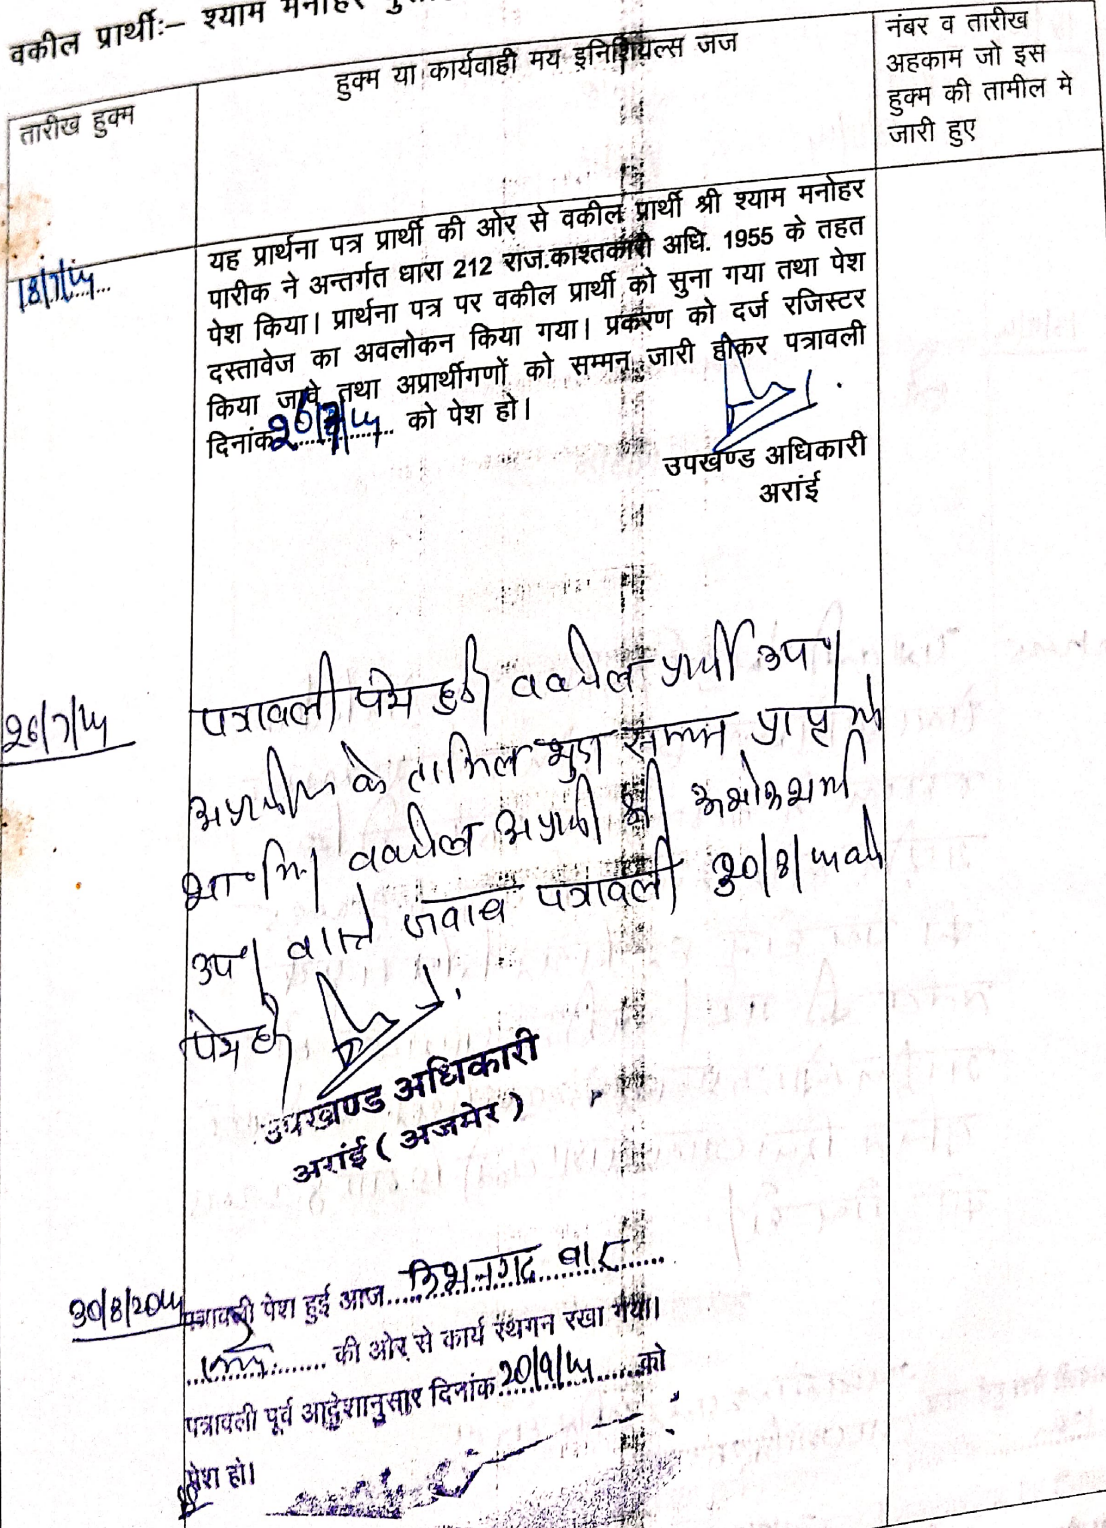 वकील प्रार्थीः– श्याम मनोहर
तारीख हुक्म
हुक्म या कार्यवाही मय इनिशियल्स जज
नंबर व तारीख
अहकाम जो इस
हुक्म की तामील मे
जारी हुए
18/7/24
यह प्रार्थना पत्र प्रार्थी की ओर से वकील प्रार्थी श्री श्याम मनोहर
पारीक ने अन्तर्गत धारा 212 राज.काश्तकारी अधि. 1955 के तहत
पेश किया। प्रार्थना पत्र पर वकील प्रार्थी को सुना गया तथा पेश
दस्तावेज का अवलोकन किया गया। प्रकरण को दर्ज रजिस्टर
किया जावे तथा अप्रार्थीगणों को सम्मन जारी होकर पत्रावली
दिनांक 26/7/24 को पेश हो।
उपखण्ड अधिकारी
अरांई
26/7/24
पत्रावली पेश हुई वकील प्रार्थी उप।
के तामिल शुदा सम्मन प्राप्त
वकील अप्रार्थी श्री अशोक शर्मा
उप। वास्ते जवाब पत्रावली 30/8/24 को
पेश हो
उपखण्ड अधिकारी
अरांई ( अजमेर )
30/8/2024
पत्रावली पेश हुई आज किशनगढ बार
की ओर से कार्य स्थगन रखा गया।
पत्रावली पूर्व आदेशानुसार दिनांक 20/9/24 को
पेश हो।